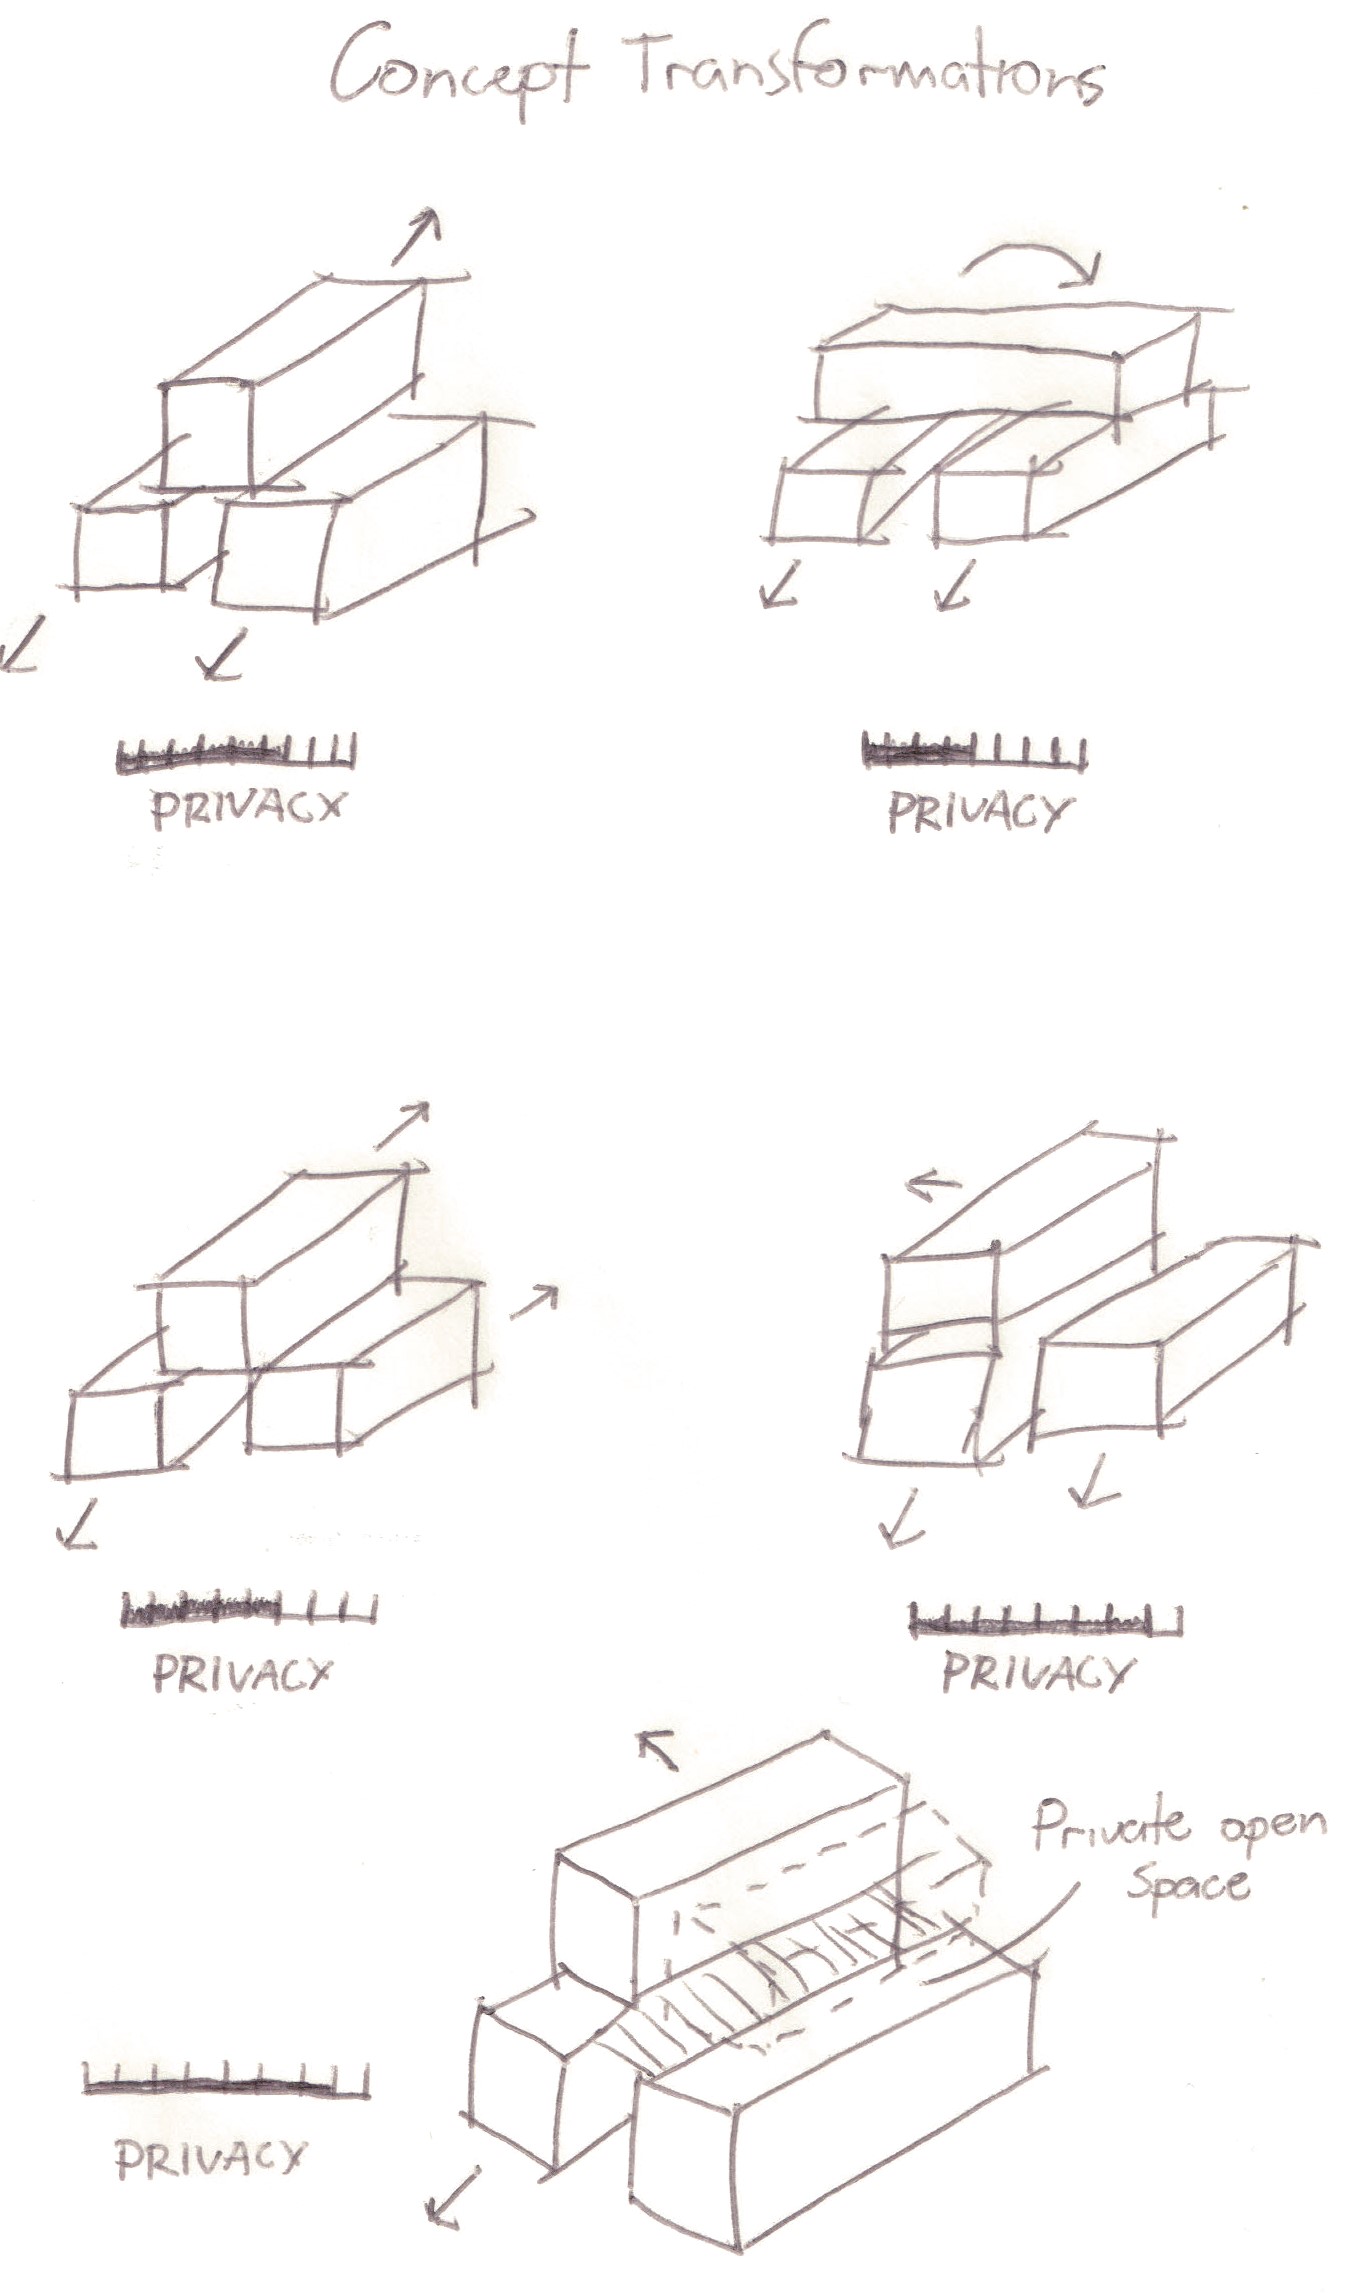 Concept Transformations
PRIVACY
PRIVACY
PRIVACY
PRIVACY
Private open
Space
PRIVACY